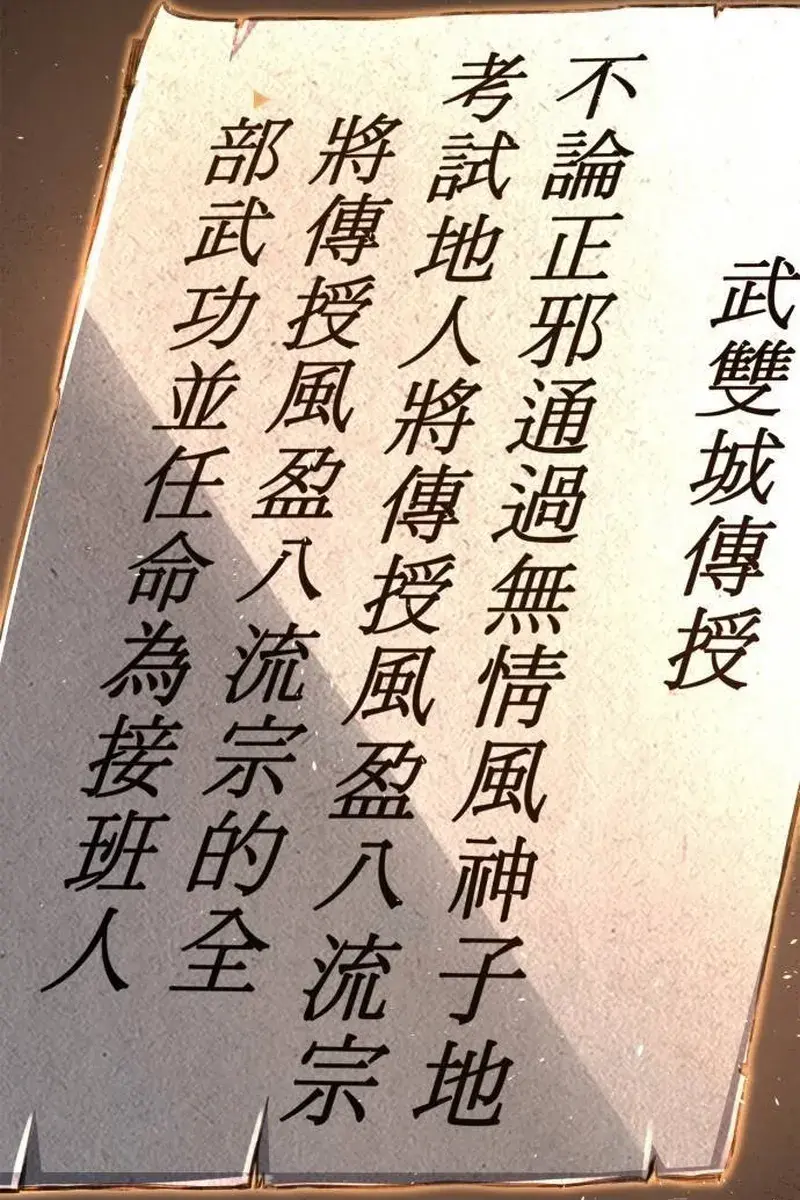 武雙城傳授
不論正邪通過無情風神子地
考試地人將傳授風盈八流宗
將傳授風盈八流宗的全
部武功並任命為接班人